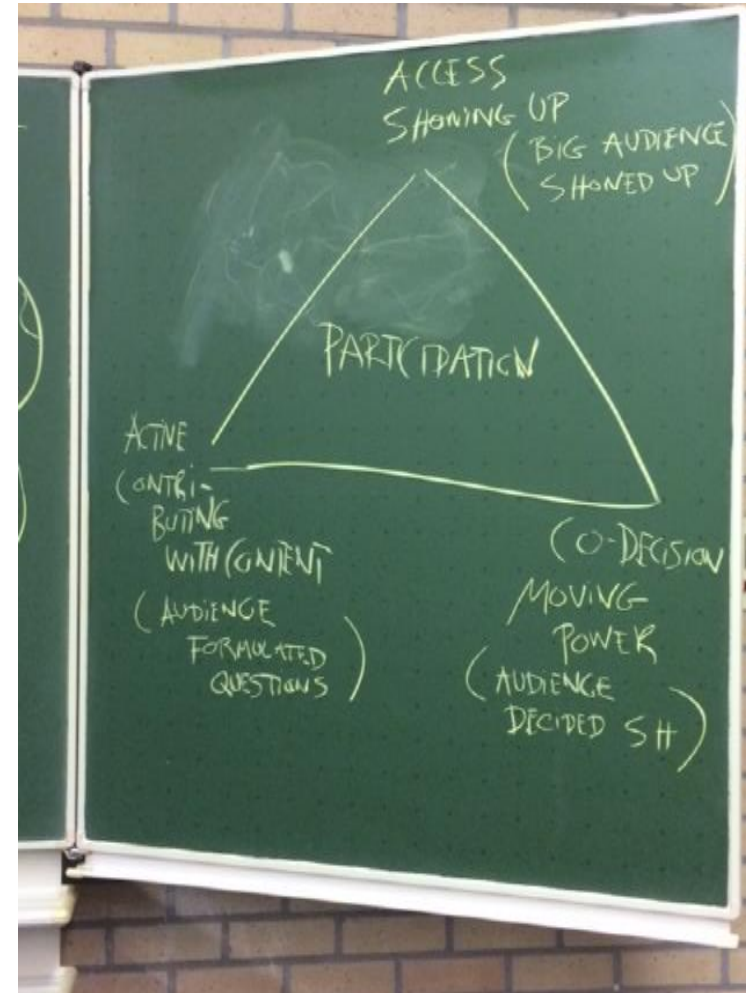 ACCESS
SHOWING UP
(BIG AUDIENCE
SHOWED UP)
PARTICIPATION
ACTIVE
CONTRI-
BUTING
WITH CONTENT
(AUDIENCE
FORMULATED
QUESTIONS)
CO-DECISION
MOVING
POWER
(AUDIENCE
DECIDED SH)